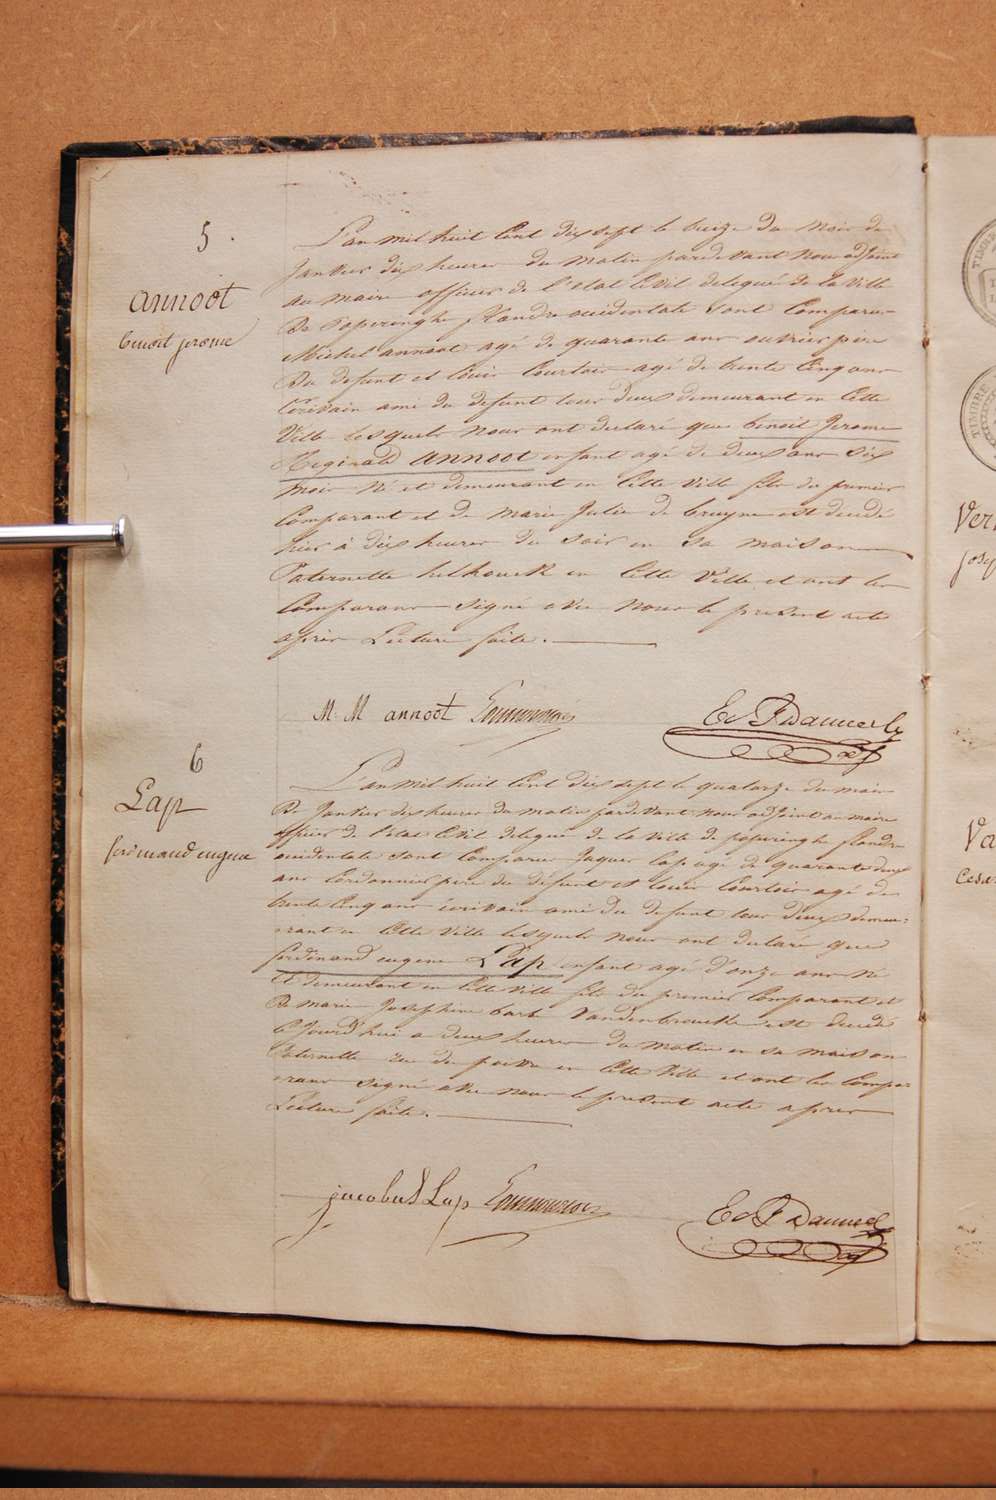 5
annoot
benoit jerome
L'an mil huit Cent dix sept le treize du Mois de
Janvier dix heures du Matin pardevant Nous adjoint
au maire officier de l'etat Civil delegué de la Ville
De Poperinghe flandre occidentale sont Comparu
Michel annoot agé de quarante ans ouvrier pere
Du defunt et louis Courtois agé de trente Cinq ans
Ecrivain ami du defunt tous deux demeurant en Cette
Ville lesquels Nous ont declaré que benoit Jerome
Reginald annoot enfant agé de deux ans six
mois Né et demeurant en Cette Ville fils du premier
Comparant et de Marie Julie de bruyne est decedé
hier à dix heures du soir en sa maison
Paternelle helhouck en Cette Ville et ont les
Comparans signé avec Nous le present acte
après Lecture faite.
M. M annoot
6
Lap
ferdinand eugene
L'an mil huit Cent dix sept le quatorze du mois
De Janvier dix heures du matin pardevant nous adjoint au maire
officier de l'etat Civil delegué de la Ville de poperinghe flandre
occidentale sont Comparu Jaques Lap agé de quarante deux
ans Cordonnier pere du defunt et louis Courtois agé de
trente Cinq ans écrivain ami Du defunt tous deux demeu-
rant en Cette Ville lesquels nous ont declaré que
ferdinand eugene Lap enfant agé d'onze ans né
Et demeurant en Cette Ville fils du premier Comparant et
De marie Josephine barbe Vandenbrouck est decedé
le Jourd'hui a deux heures du matin en sa maison
Paternelle rue de en Cette Ville et ont les Compa-
rans signé avec nous le present acte apres
Lecture faite.
jacobus Lap
TIMBRE
TIMBRE
Ver
Jose
Va
Cesa